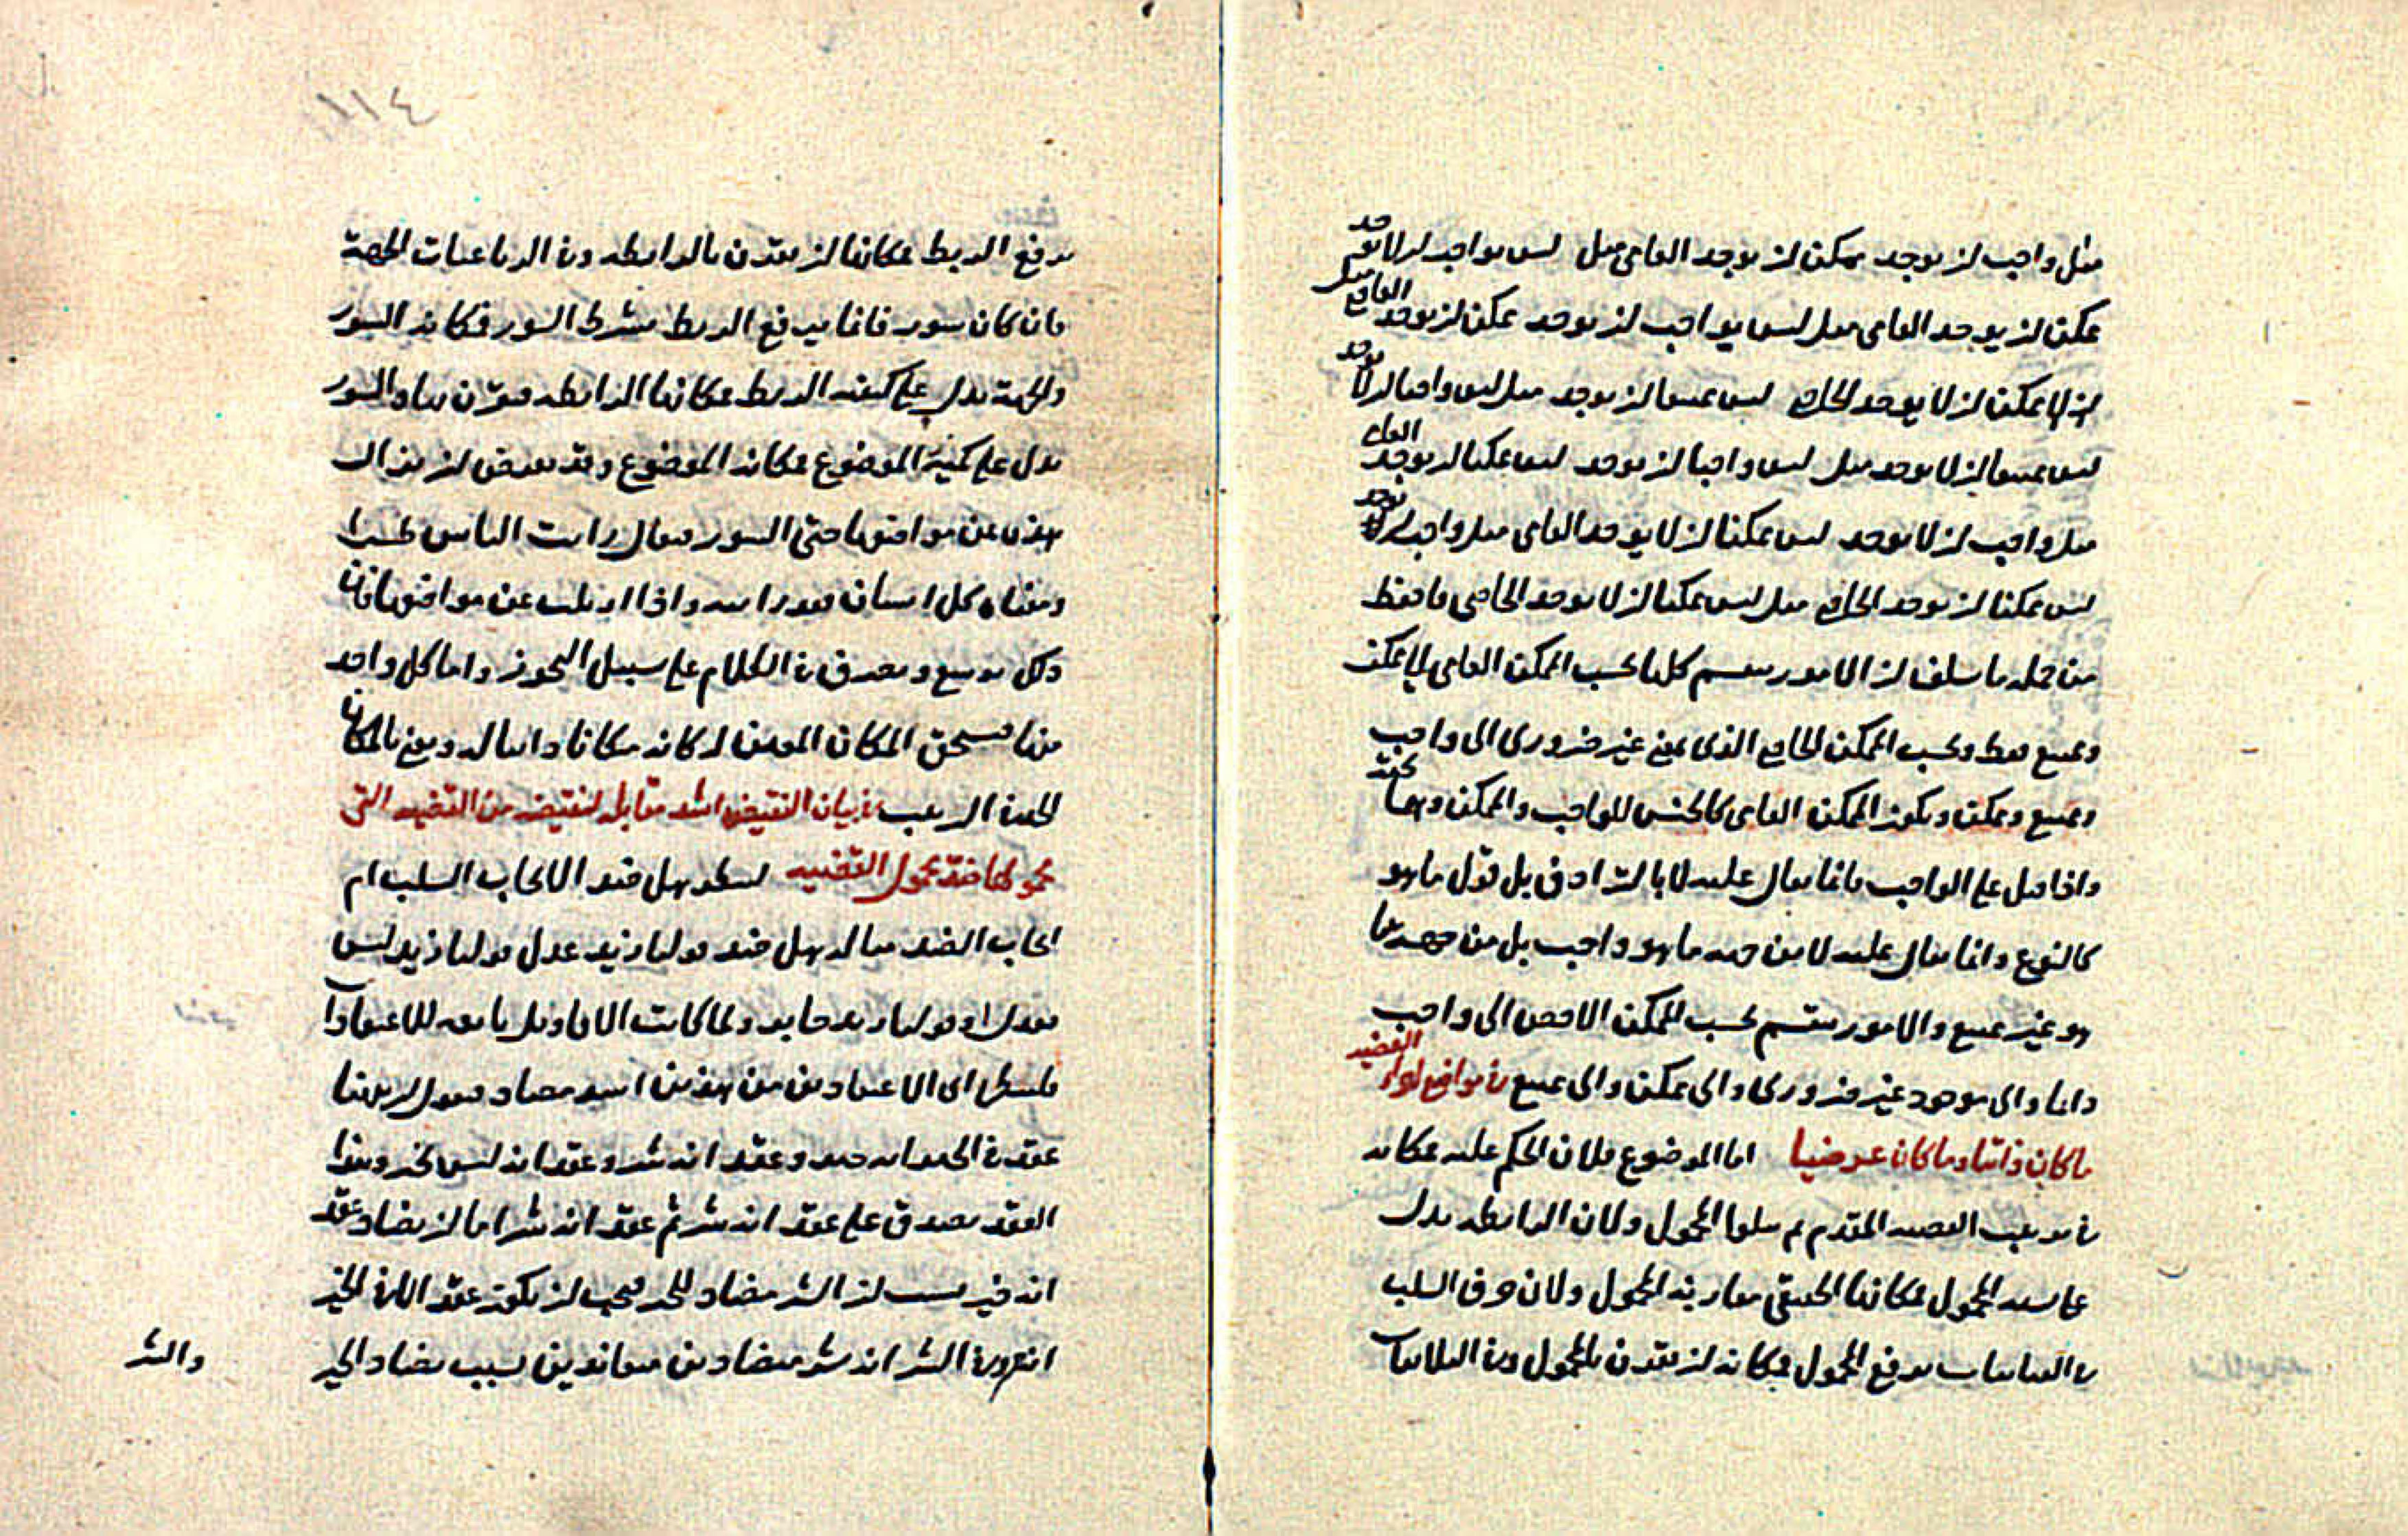 مثل واجب ان يوجد ممكن ان يوجد العامى مثل ليس بواجب ان لا يوجد
ممكن ان يوجد العامى مثل ليس بواجب ان يوجد ممكن ان يوجد الخاص مثل
ممكن ان لا يوجد الخاص ليس ممتنعا ان يوجد مثل ليس واجبا ان لا يوجد
ليس ممتنعا ان لا يوجد مثل ليس واجبا ان يوجد ليس ممكنا ان يوجد العامى
مثل واجب ان لا يوجد ليس ممكنا ان لا يوجد العامى مثل واجب ان يوجد
ليس ممكنا ان يوجد الخاص مثل ليس ممكنا ان لا يوجد الخاصى فاحفظ
من جمله ما سلف ان الامور ينقسم كلها بحسب الممكن العامى الى ممكن
وممتنع فقط وبحسب الممكن الخاص الذى بمعنى غير ضرورى الى واجب
وممتنع وممكن ويكون الممكن العامى كالجنس للواجب والممكن وهما تحته
واذا قيل على الواجب فانما يقال عليه لا بالترادف بل قول ما هو
كالنوع وانما يقال عليه لا من جهه ما هو واجب بل من جهه ما
هو غير ممتنع والامور ينقسم بحسب الممكن الاخص الى واجب
دائما والى موجود غير ضرورى والى ممكن والى ممتنع فى مواضع اجزاء القضيه
ما كان ذاتيا وما كان عرضيا اما الموضوع فلان الحكم عليه فمكانه
فى ترتيب القضيه المقدم ثم يتلوها المحمول ولان الرابطه يدل
على نسبه المحمول فمكانها الحقيقى مقارنه المحمول ولان حرف السلب
فى الثنائيات يرفع المحمول فمكانه ان يقرن بالمحمول وفى الثلاثيات
يرفع الربط فمكانها ان يقرن بالرابطه وفى الرباعيات الجهة
فان كان سور فانما يرفع الربط بشرط السور فمكانه السور
والجهة يدل على كيفيه الربط فمكانها الرابطه فيقرن بها والسور
يدل على كمية الموضوع فمكانه الموضوع وقد يعرض ان يزال
هذه عن مواضعها حتى السور فيقال رايت الناس طرا
ومعناه كل انسان فقد رايته واذا ازيلت عن مواضعها فان
ذلك توسع وتصرف فى الكلام على سبيل التجوز واما كل واحد
منها فيستحق المكان المعين له كانه مكانا ذاتيا له ونعنى بالمكان
الحد فى الترتيب فى بيان النقيض اشد مقابله لنقيضه من القضيه التى
محمولها ضد محمول القضيه لينظر هل ضد الايجاب السلب ام
ايجاب الضد مثاله هل ضد قولنا زيد عدل قولنا زيد ليس
بعدل او قولنا زيد جاير ولما كانت الاقاويل تابعه للاعتقادات
فلينظر اى الاعتقادين من هذين اشد مضاده فنقول ان ههنا
عقدة فى الخير انه خير وعقد انه شر وعقد انه ليس بخير وهذا
العقد يصدق على عقد انه شر ثم عقد انه شر اما ان يضاد عقد
انه خير بسبب ان الشر مضاد للخير فيجب ان يكون عقد ان الخير
انه خير وفى الشر انه شر متضادين متعاندين بسبب تضاد الخير
والشر
١١٤